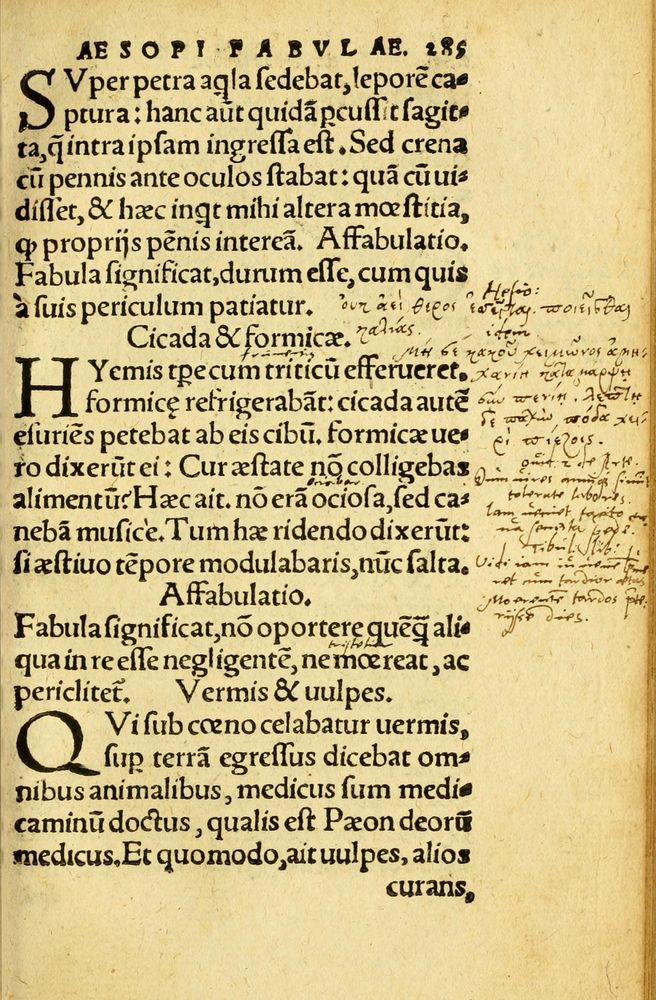 AESOPI FABVLAE. 285
SVper petra aq̃la sedebat, leporẽ ca-
ptura: hanc aũt quidã ꝑcussit sagit-
ta, q̃ intra ipsam ingressa est. Sed crena
cũ pennis ante oculos stabat: quã cũ ui-
disset, & hæc inqt mihi altera mœstitia,
ꝙ proprijs pẽnis intereã. Affabulatio.
Fabula significat, durum esse, cum quis
à suis periculum patiatur.
Cicada & formicæ.
HYemis tꝑe cum triticũ efferueret,
formicę refrigerabãt: cicada autẽ
esuriẽs petebat ab eis cibũ. formicæ ue-
ro dixerũt ei: Cur æstate nõ colligebas
alimentũ? Hæc ait. nõ erã ociosa, sed ca-
nebã musicè. Tum hæ ridendo dixerũt:
si æstiuo tẽpore modulabaris, nũc salta.
Affabulatio.
Fabula significat, nõ oportere quẽq̃ ali-
qua in re esse negligentẽ, ne mœreat, ac
periclitet̃. Vermis & uulpes.
QVi sub cœno celabatur uermis,
suꝑ terrã egressus dicebat om-
nibus animalibus, medicus sum medi-
caminũ doctus, qualis est Pæon deorũ
medicus. Et quomodo, ait uulpes, alios
curans,
οὐκ ἀεὶ θέρος
idem
tolerate labores.
dies.